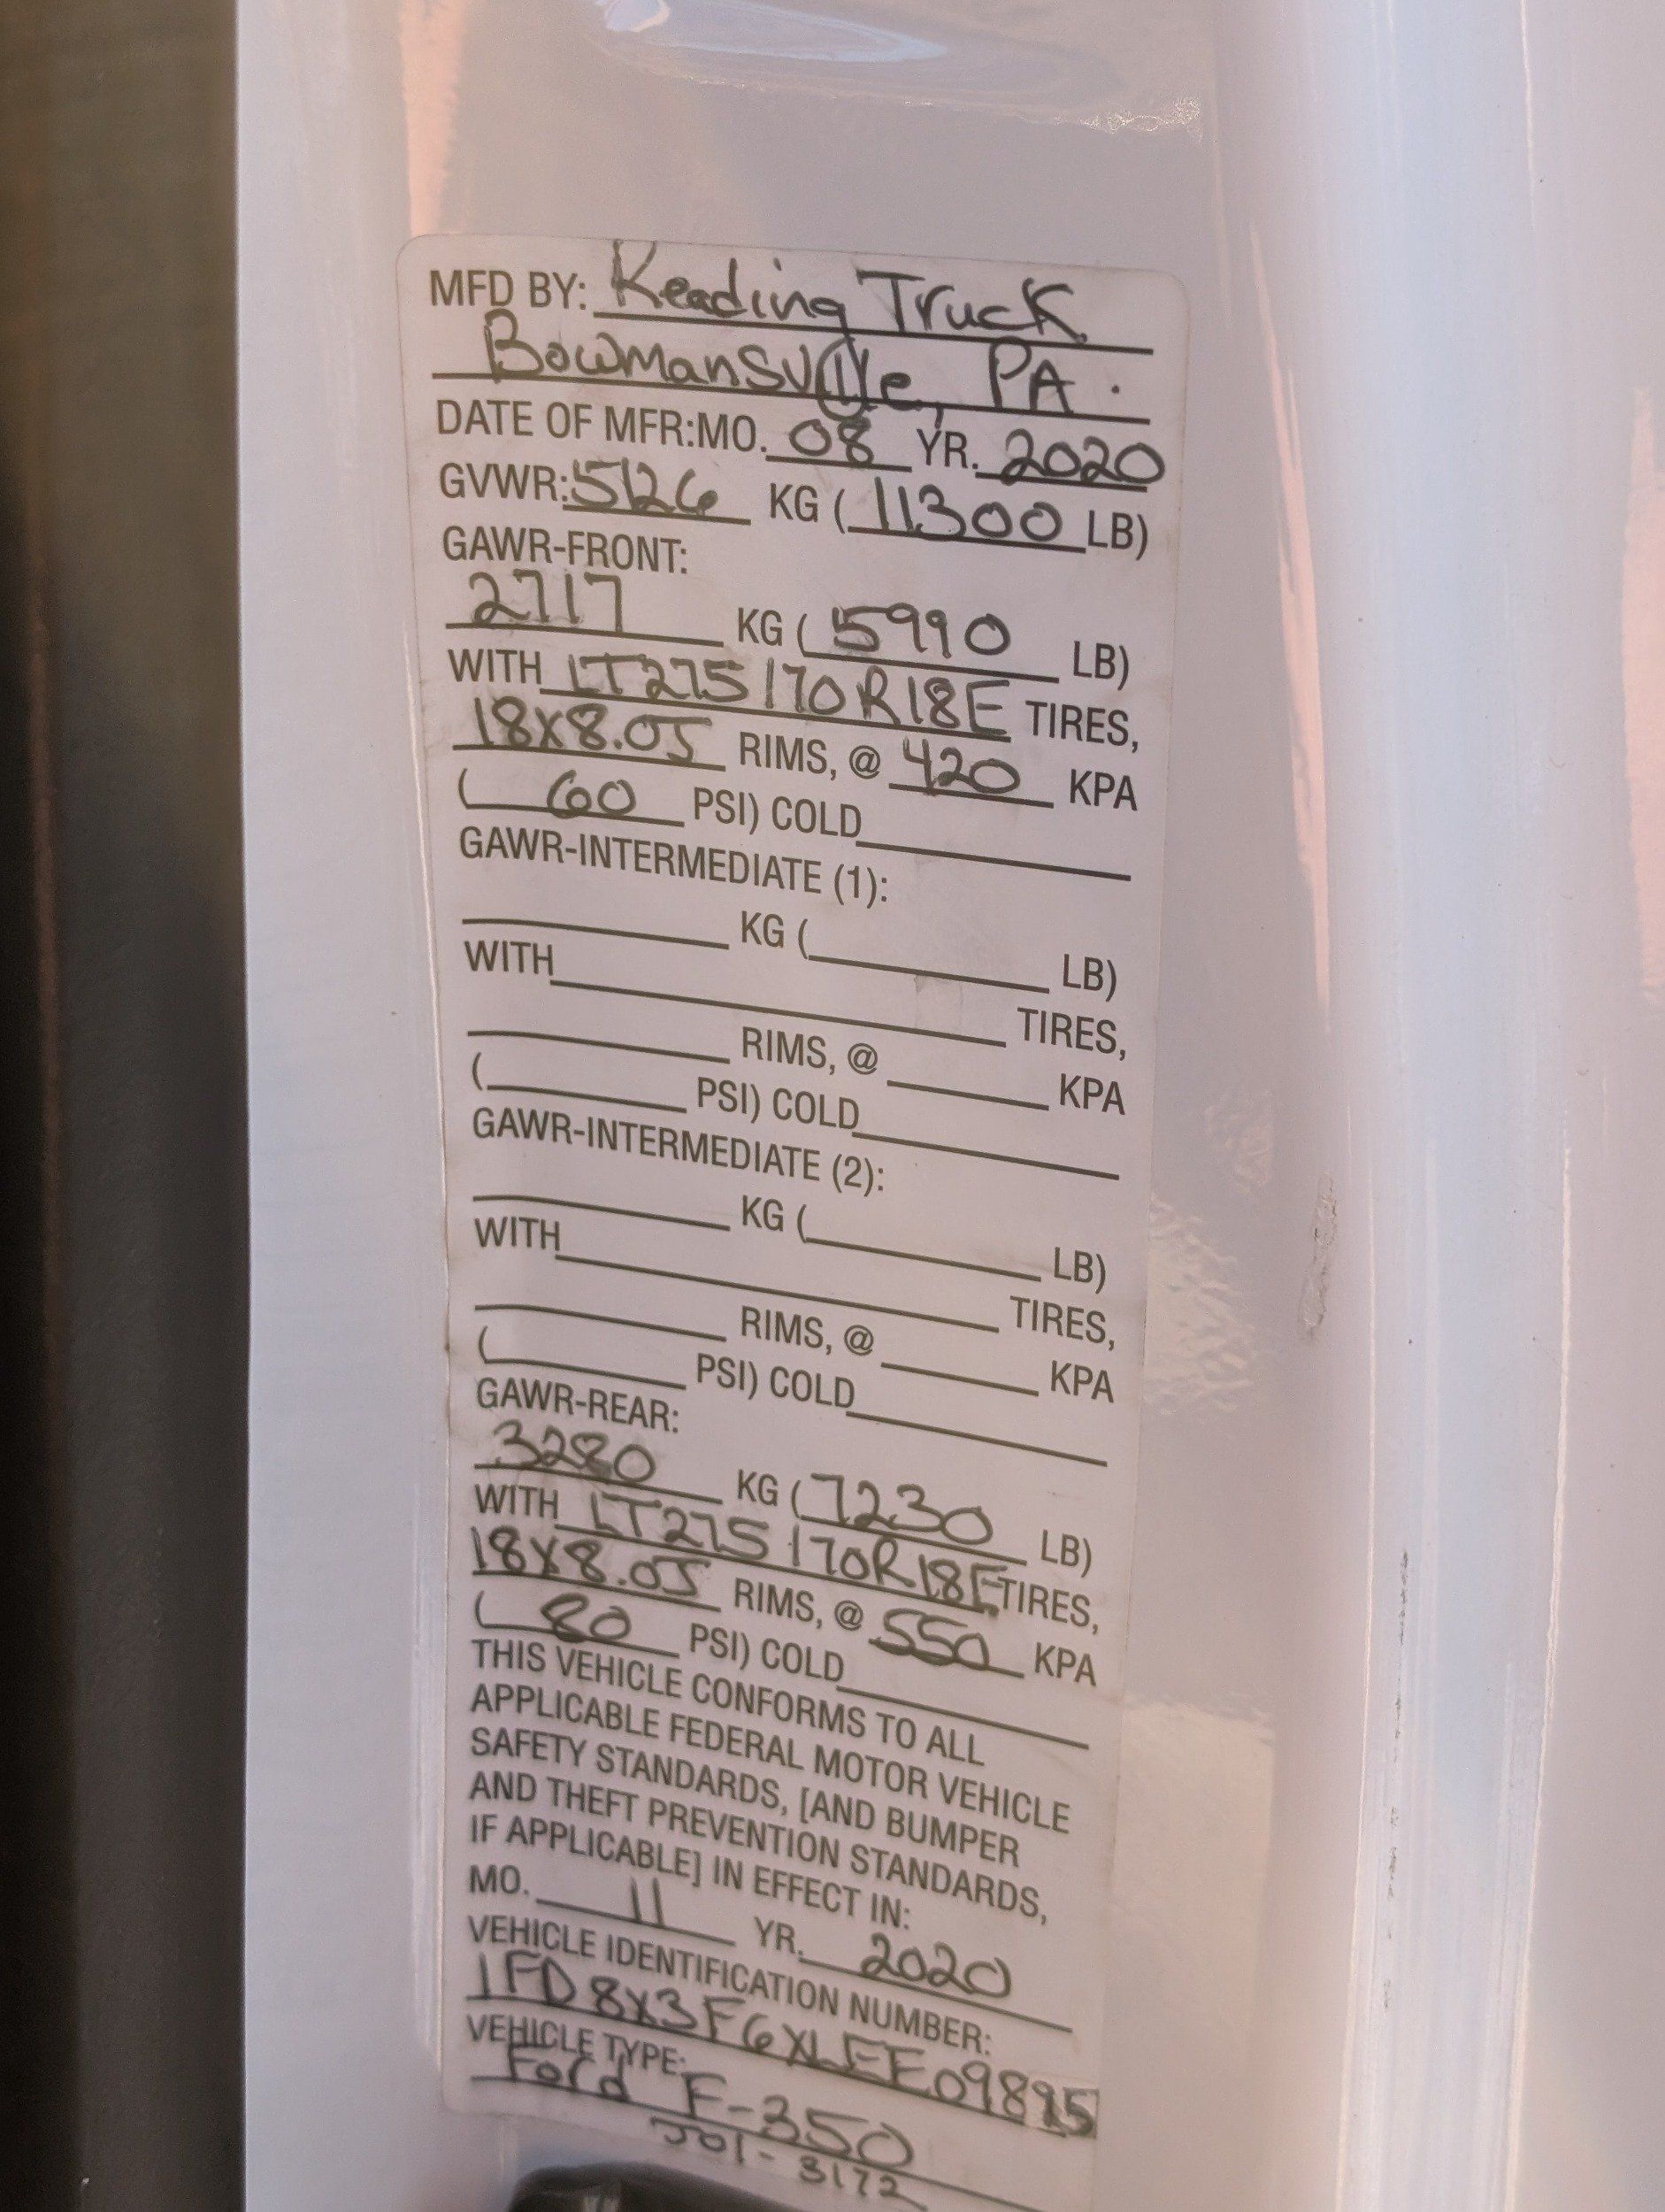 MFD BY: Reading Truck
Bowmansville, PA.
DATE OF MFR:MO. 08 YR. 2020
GVWR: 5126 KG ( 11300 LB)
GAWR-FRONT:
2717 KG ( 5990 LB)
WITH LT275/70R18E TIRES,
18x8.0J RIMS, @ 420 KPA
( 60 PSI) COLD
GAWR-INTERMEDIATE (1):
KG ( LB)
WITH TIRES,
RIMS, @ KPA
( PSI) COLD
GAWR-INTERMEDIATE (2):
KG ( LB)
WITH TIRES,
RIMS, @ KPA
( PSI) COLD
GAWR-REAR:
3280 KG ( 7230 LB)
WITH LT275/70R18E TIRES,
18x8.0J RIMS, @ 550 KPA
( 80 PSI) COLD
THIS VEHICLE CONFORMS TO ALL
APPLICABLE FEDERAL MOTOR VEHICLE
SAFETY STANDARDS, [AND BUMPER
AND THEFT PREVENTION STANDARDS,
IF APPLICABLE] IN EFFECT IN:
MO. 11 YR. 2020
VEHICLE IDENTIFICATION NUMBER:
1FD8X3F6XLEE09895
VEHICLE TYPE:
Ford F-350
J01-3172